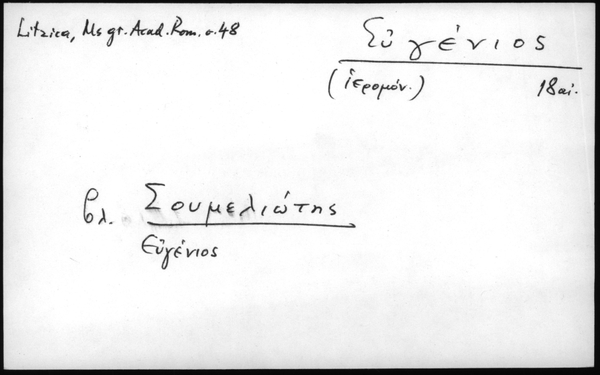 Litzica, Ms gr. Acad. Rom. σ. 48
Εὐγένιος
(ἱερομόν.)
18 αἰ.
βλ. Σουμελιώτης
Εὐγένιος